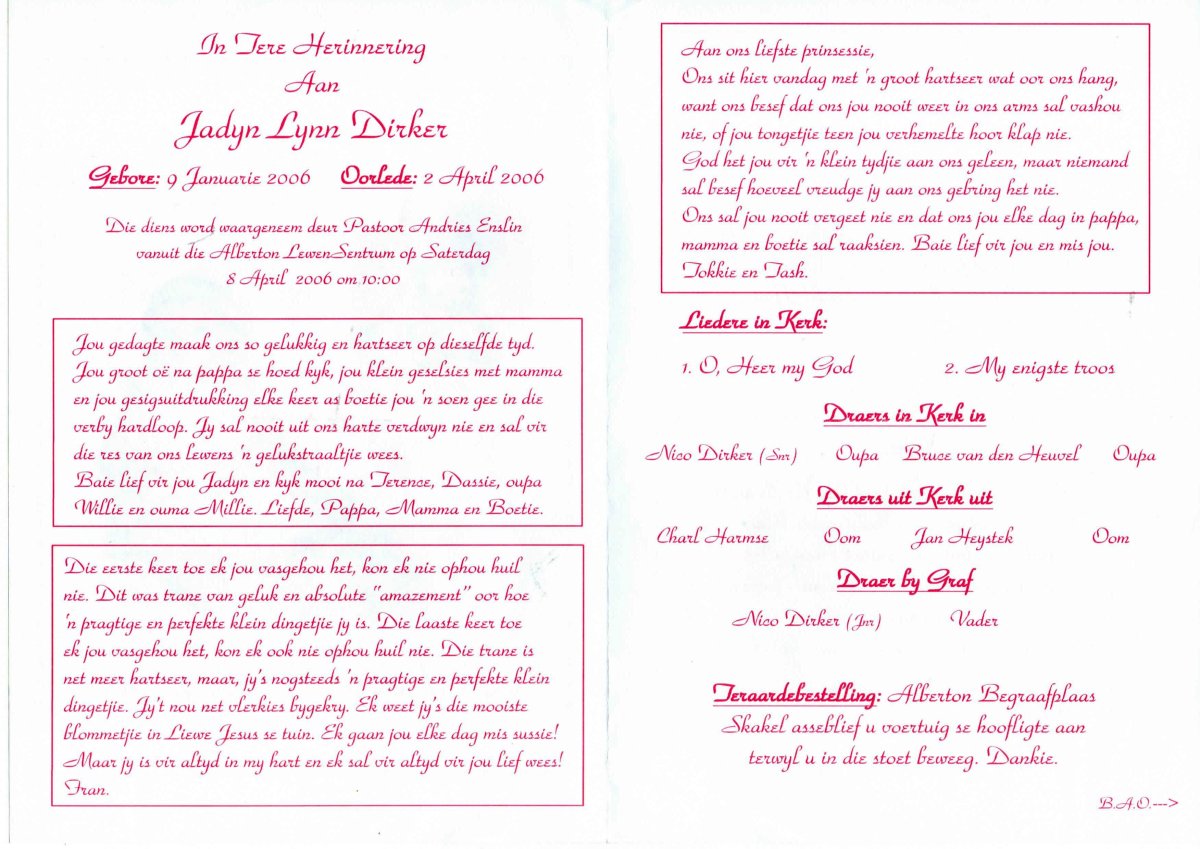 In Tere Herinnering
Aan
Jadyn Lynn Dirker
Gebore: 9 Januarie 2006 Oorlede: 2 April 2006
Die diens word waargeneem deur Pastoor Andries Enslin
vanuit die Alberton LewenSentrum op Saterdag
8 April 2006 om 10:00
Jou gedagte maak ons so gelukkig en hartseer op dieselfde tyd.
Jou groot oë na pappa se hoed kyk, jou klein geselsies met mamma
en jou gesigsuitdrukking elke keer as boetie jou 'n soen gee in die
verby hardloop. Jy sal nooit uit ons harte verdwyn nie en sal vir
die res van ons lewens 'n gelukstraaltjie wees.
Baie lief vir jou Jadyn en kyk mooi na Terence, Dassie, oupa
Willie en ouma Millie. Liefde, Pappa, Mamma en Boetie.
Die eerste keer toe ek jou vasgehou het, kon ek nie ophou huil
nie. Dit was trane van geluk en absolute "amazement" oor hoe
'n pragtige en perfekte klein dingetjie jy is. Die laaste keer toe
ek jou vasgehou het, kon ek ook nie ophou huil nie. Die trane is
net meer hartseer, maar, jy's nogsteeds 'n pragtige en perfekte klein
dingetjie. Jy't nou net vlerkies bygekry. Ek weet jy's die mooiste
blommetjie in Liewe Jesus se tuin. Ek gaan jou elke dag mis sussie!
Maar jy is vir altyd in my hart en ek sal vir altyd vir jou lief wees!
Fran.
Aan ons liefste prinsessie,
Ons sit hier vandag met 'n groot hartseer wat oor ons hang,
want ons besef dat ons jou nooit weer in ons arms sal vashou
nie, of jou tongetjie teen jou verhemelte hoor klap nie.
God het jou vir 'n klein tydjie aan ons geleen, maar niemand
sal besef hoeveel vreudge jy aan ons gebring het nie.
Ons sal jou nooit vergeet nie en dat ons jou elke dag in pappa,
mamma en boetie sal raaksien. Baie lief vir jou en mis jou.
Tokkie en Tash.
Liedere in Kerk:
1. O, Heer my God 2. My enigste troos
Draers in Kerk in
Nico Dirker (Snr) Oupa Bruce van den Heuvel Oupa
Draers uit Kerk uit
Charl Harmse Oom Jan Heystek Oom
Draer by Graf
Nico Dirker (Jnr) Vader
Teraardebestelling: Alberton Begraafplaas
Skakel asseblief u voertuig se hoofligte aan
terwyl u in die stoet beweeg. Dankie.
B.A.O.--->